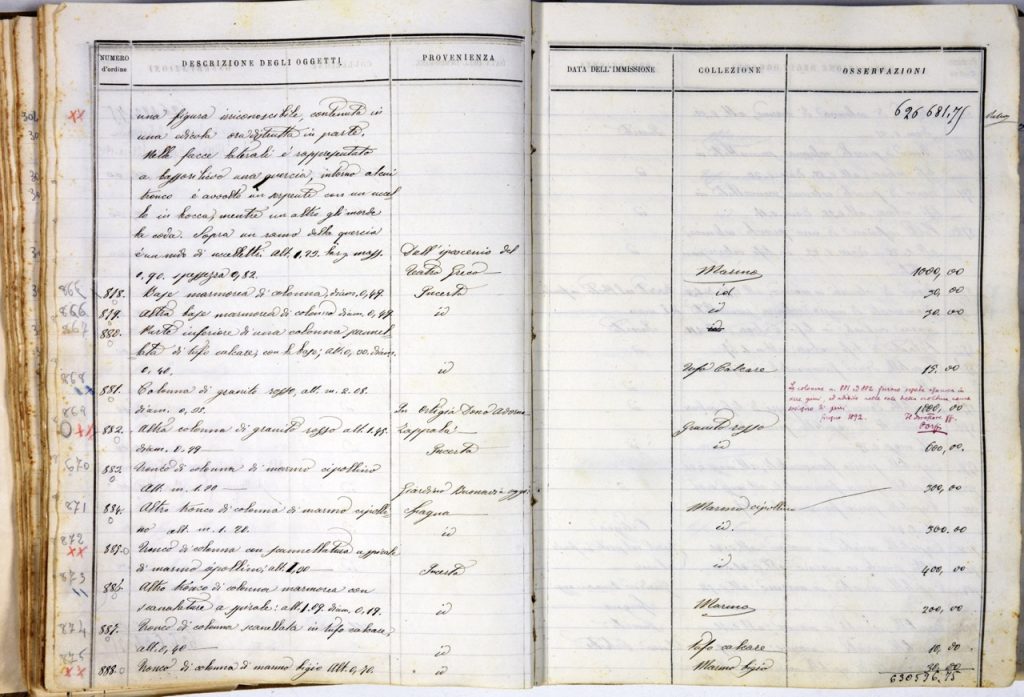 NUMERO d'ordine
DESCRIZIONE DEGLI OGGETTI
PROVENIENZA
DATA DELL'IMMISSIONE
COLLEZIONE
OSSERVAZIONI
626 681,75
una figura irriconoscibile, contenuta in
una edicola ora distrutta in parte.
Nelle facce laterali è rappresentato
a bassorilievo una quercia, intorno al cui
tronco è avvolto un serpente con un uccel
lo in bocca, mentre un altro gli morde
la coda. Sopra un ramo della quercia
è un nido di uccelletti. Alt. 1,93. larg. mass. Dall'iposcenio del
0,90. spessezza 0,82. Teatro Greco Marmo 1000,00
865 878. Base marmorea di colonna, diam. 0,49. Incerta id 30,00
866 879. Altra base marmorea di colonna diam. 0,49. id id 30,00
867 880. Parte inferiore di una colonna scannel
lata di tufo calcare, con la base; alt. 0,00. diam.
0,40. id Tufo Calcare 15,00
868 881. Colonna di granito rosso alt. m. 2.08.
Le colonne n. 881 e 882 furono
giugno 1892. Il Direttore ff.
Orsi
diam. 0,35. In Ortigia Dono Adorno 1000,00
869 XX 882. Altra colonna di granito rosso alt. 1.45. Zappalà Granito rosso
diam. 0,49 Incerta id 600,00
870 883. Tronco di colonna di marmo cipollino
alt. m. 1.00 Giardino Bonavia oggi 300,00
871 884. Altro tronco di colonna di marmo cipolli- Spagna Marmo cipollino
no alt. m. 1.20. id id. 300,00
872 XX 885. Tronco di colonna con scannellatura a spirale
di marmo cipollino; alt. 1,00 Incerta id 400,00
873 886. Altro tronco di colonna marmorea con
scanalature a spirale: alt. 1.09. diam. 0,19. id Marmo 200,00
874 887. Tronco di colonna scanellata in tufo calcare,
alt. 0,40 id Tufo calcare 10,00
875 XX 888. Tronco di colonna di marmo bigio Alt. 0,70. id Marmo bigio 30,00
630596,75